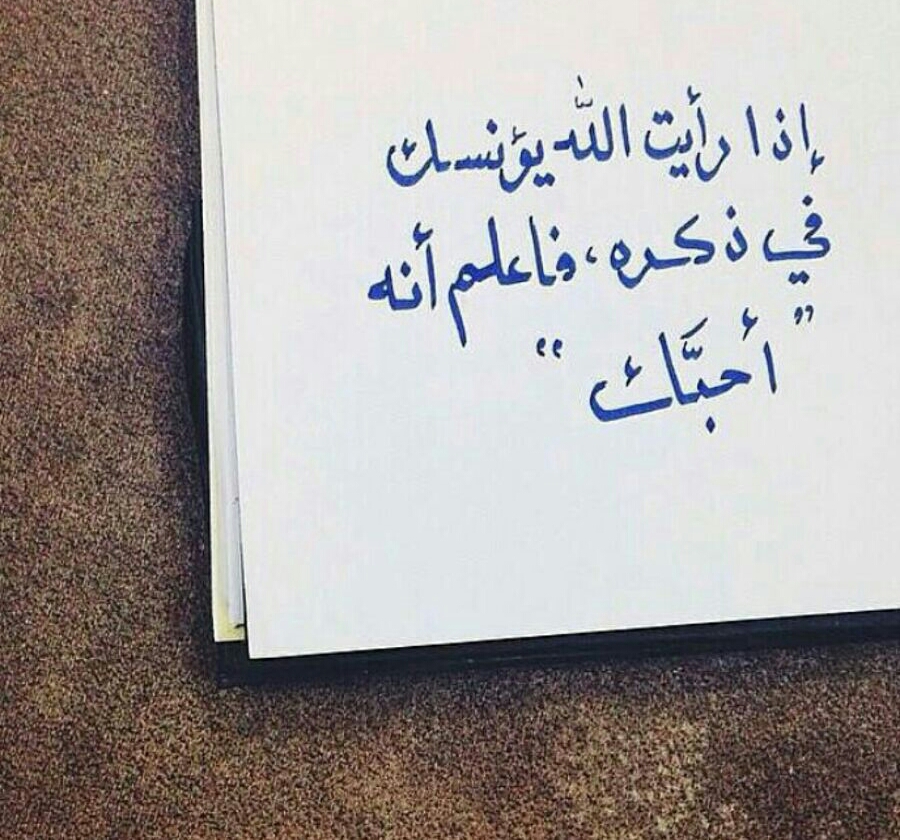 إذا رأيت الله يؤنسك
في ذكره، فاعلم أنه
"أحبَّك"